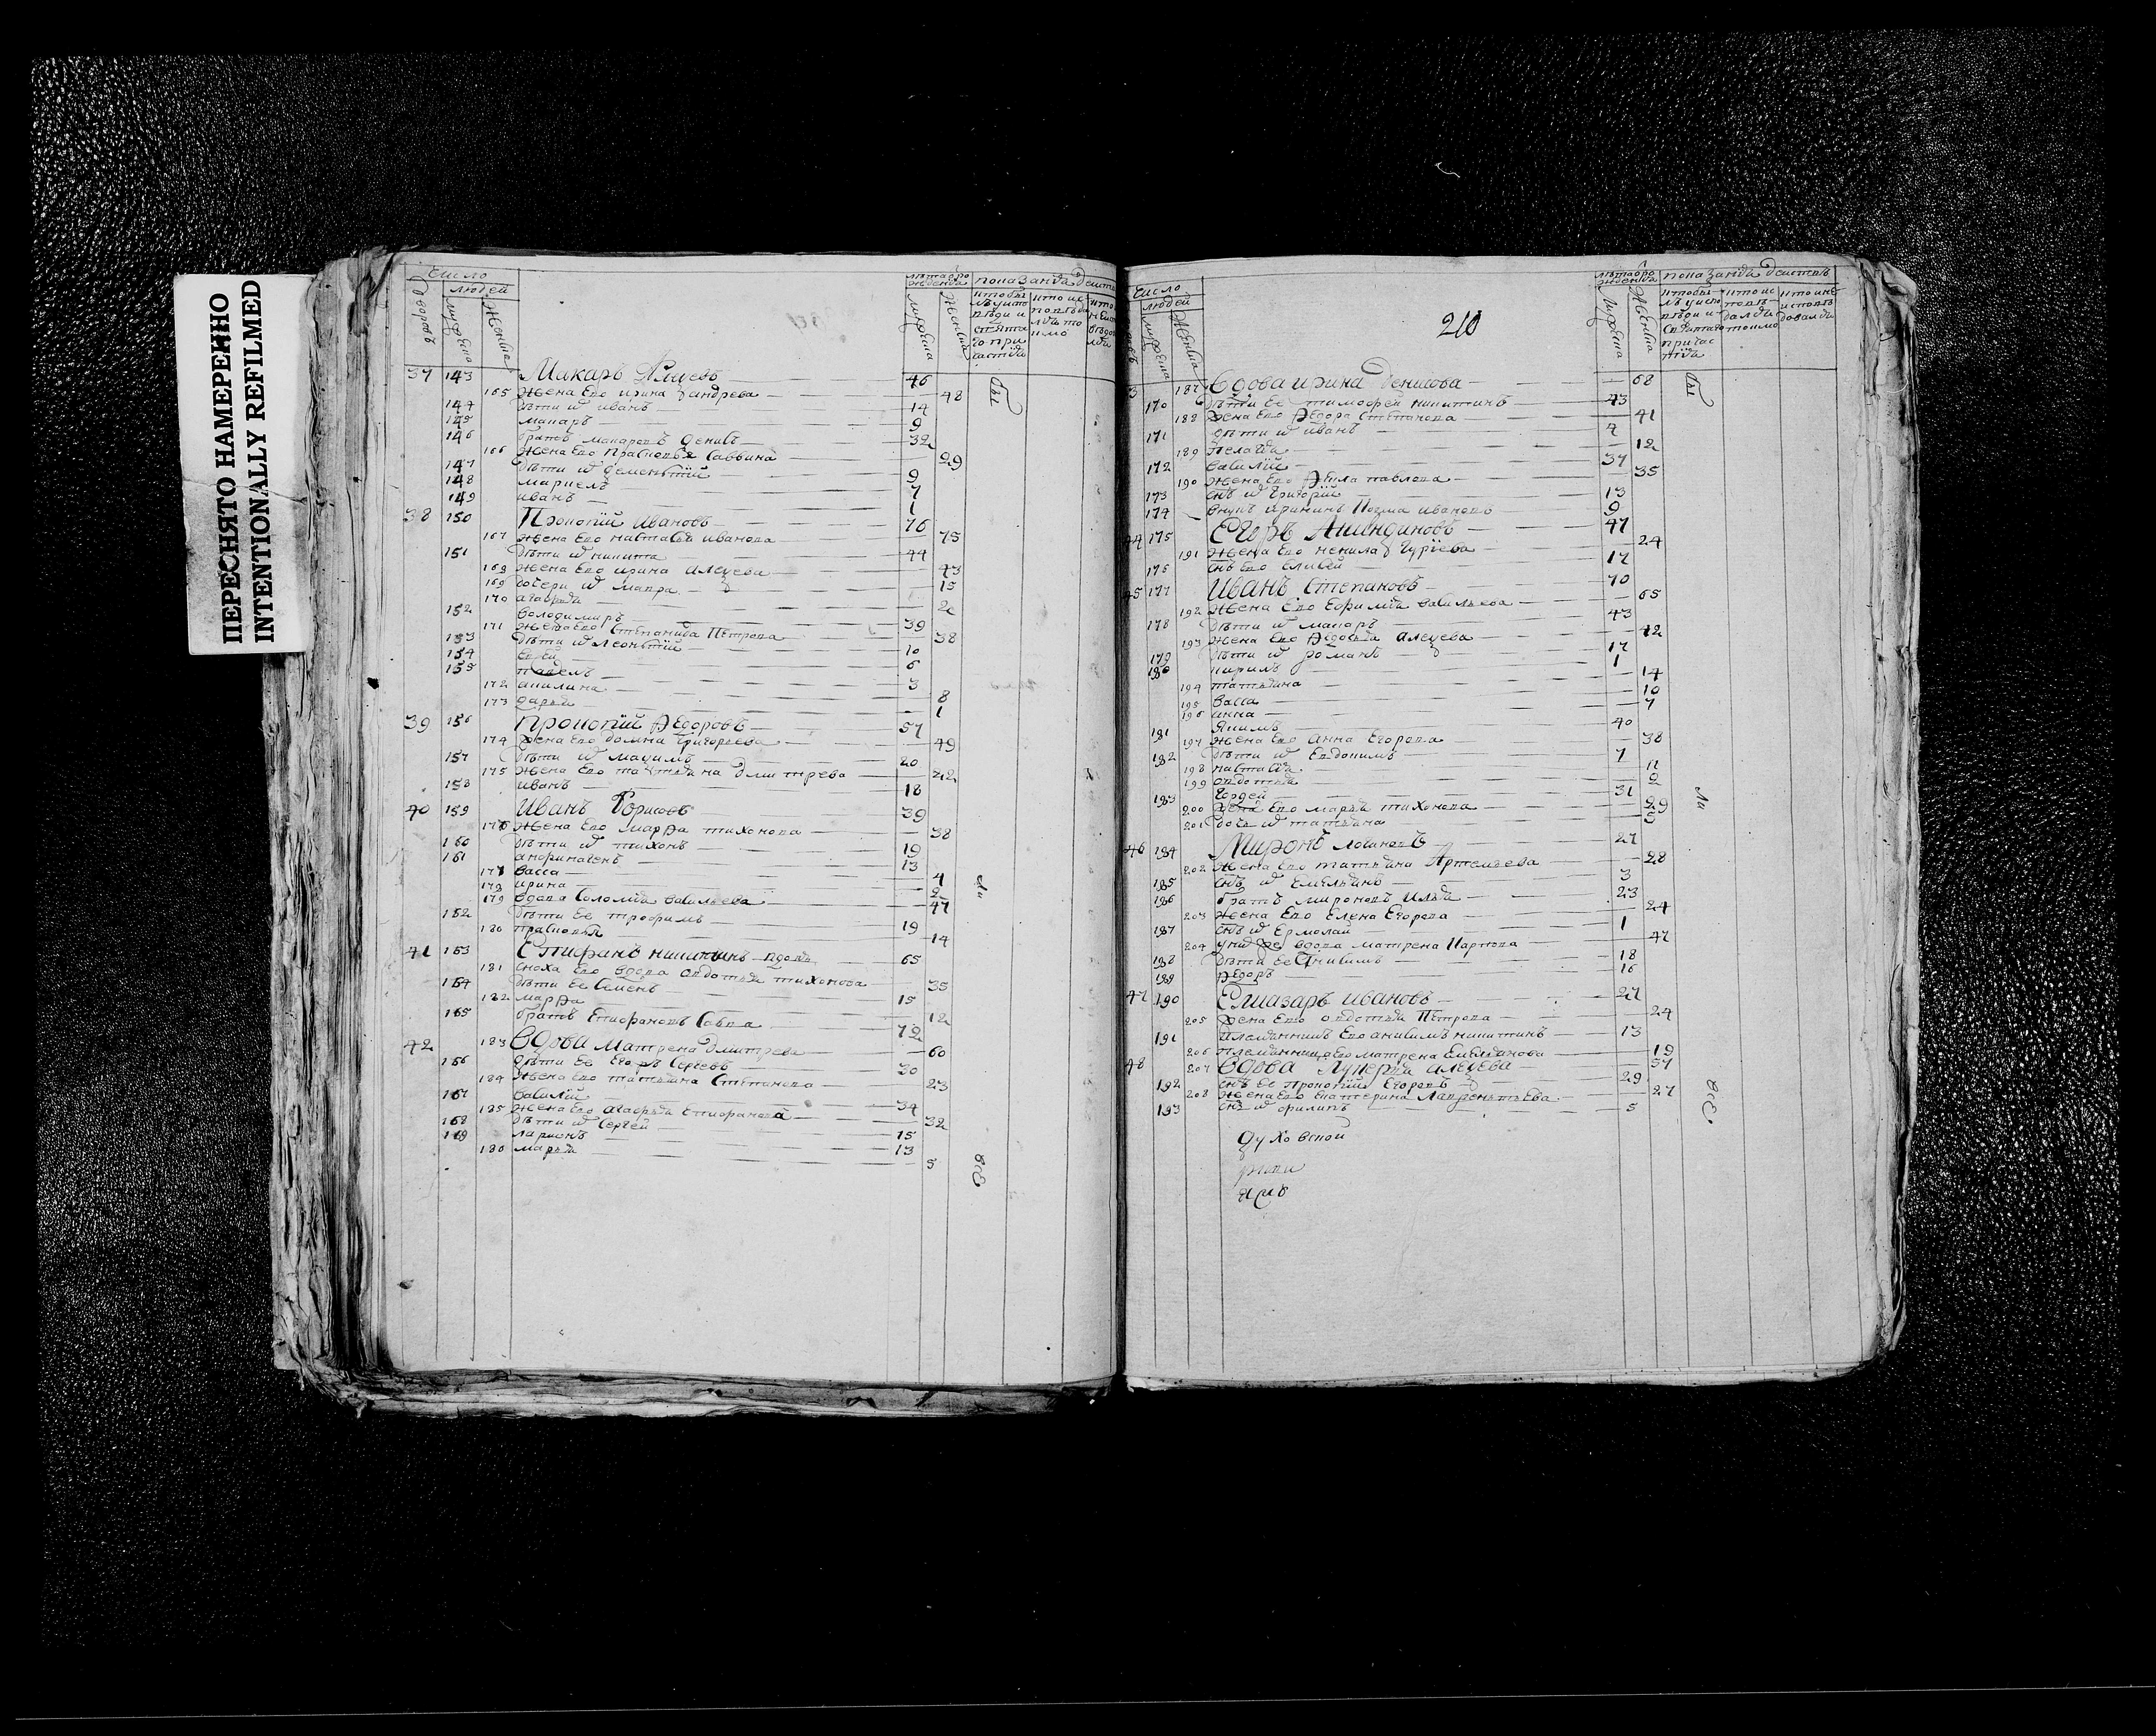 ПЕРЕСНЯТО НАМЕРЕННО
INTENTIONALLY REFILMED
Число
людей
37 143 Макаръ 46
165 жена ево ирина андрева 48
144 дѣти их иванъ 14
145 макаръ 9
146 братъ макаровъ денисъ 32
166 жена ево прасковья саввина 29
147 дѣти их дементїй 9
148 маркелъ 7
149 иванъ 1
38 150 Прокопїй Ивановъ 76
167 жена ево настасья иванова 75
151 дѣти их никита 44
168 жена ево ирина алеѯева 43
169 дочери их мавра 15
170 агафья
152 володимиръ 39
171 жена ево степанида петрова 38
153 дѣти их леонтїй 10
154 6
155 павелъ 3
172 акилина 8
173 дарья 1
39 156 Прокопїй Ѳедоровъ 57
174 жена ево домна григорьева 49
157 дѣти их маѯимъ 20
175 жена ево татьяна дмитрева 22
158 иванъ 18
40 159 Иванъ Борисовъ 39
176 жена ево марѳа тихонова 38
160 дѣти их тихонъ 19
161 13
177 васса 4
178 ирина 2
179 вдова соломия васильева 47
162 дѣти ее трофимъ 19
180 прасковья 14
41 163 Епифанъ никитинъ вдовъ 65
181 сноха ево вдова овдотья тихонова 35
164 дѣти ее семенъ 15
182 марѳа 12
165 братъ епифановъ савва 72
42 183 Вдова матрена дмитрева 60
166 дѣти ее егоръ сергевъ 30
184 жена ево татьяна степанова 23
167 василїй 34
185 жена ево агафья епифанова 32
168 дѣти их сергей 15
169 ларионъ 13
186 марья 5
бы
ли
всѣ
210
Число
людей
187 Вдова ирина денисова 68
170 дѣти ее тимофей никитинъ 43
188 жена ево ѳедора степанова 41
171 дѣти их иванъ 7
189 пелагѣя 12
172 василїй 37
190 жена ево ѳекла павлова 35
173 снъ их григорїй 13
174 внукъ ирининъ козма ивановъ 9
44 175 Егоръ 47
191 жена ево ненила гурїева 24
176 снъ ево елисей 17
45 177 Иванъ Степановъ 70
192 жена ево ефимия васильева 65
178 дѣти их макаръ 43
193 жена ево ѳедосья алеѯева 42
179 дѣти их романъ 17
180 кирилъ 1
194 татьяна 14
195 васса 10
196 анна 7
181 якимъ 40
197 жена ево анна егорова 38
182 дѣти их евдокимъ 7
198 настасья 11
199 овдотья 2
183 гордей 31
200 жена ево марья тихонова 29
201 дочь их татьяна 5
46 184 Миронъ 27
202 жена ево татьяна артемьева 28
185 снъ их емельянъ 3
186 братъ мироновъ илья 23
203 жена ево елена егорова 24
187 снъ их ермолай 1
204 у них же вдова матрена карпова 47
188 дѣти ее анисимъ 18
189 ѳедоръ 16
47 190 Елиазаръ ивановъ 27
205 жена ево овдотья петрова 24
191 племянникъ ево анисимъ никитинъ 13
206 племянница ево матрена емельянова 19
48 207 Вдова лукерья алеѯева 57
192 снъ ее прокопїй егоровъ 29
208 жена ево екатерина лаврентьева 27
193 снъ их филипъ 5
бы
ли
всѣ
духовской